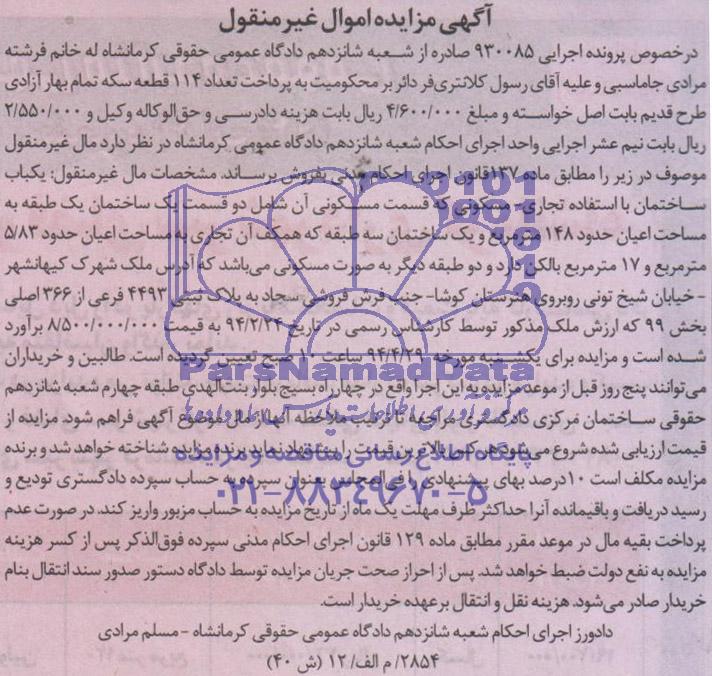 آگهی مزایده اموال غیر منقول
درخصوص پرونده اجرایی ۹۳۰۰۸۵ صادره از شعبه شانزدهم دادگاه عمومی حقوقی کرمانشاه له خانم فرشته
مرادی جاماسبی و علیه آقای رسول کلانتری فر دائر بر محکومیت به پرداخت تعداد ۱۱۴ قطعه سکه تمام بهار آزادی
طرح قدیم بابت اصل خواسته و مبلغ ۴/۶۰۰/۰۰۰ ریال بابت هزینه دادرسی و حق‌الوکاله وکیل و ۲/۵۵۰/۰۰۰
ریال بابت نیم عشر اجرایی واحد اجرای احکام شعبه شانزدهم دادگاه عمومی کرمانشاه در نظر دارد مال غیرمنقول
موصوف در زیر را مطابق ماده ۱۳۷ قانون اجرای احکام مدنی بفروش برساند. مشخصات مال غیرمنقول: یکباب
ساختمان با استفاده تجاری- مسکونی که قسمت مسکونی آن شامل دو قسمت یک ساختمان یک طبقه به
مساحت اعیان حدود ۱۴۸ مترمربع و یک ساختمان سه طبقه که همکف آن تجاری به مساحت اعیان حدود ۵/۸۳
مترمربع و ۱۷ مترمربع بالکن دارد و دو طبقه دیگر به صورت مسکونی می‌باشد که آدرس ملک شهرک کیهانشهر
- خیابان شیخ تونی روبروی هنرستان کوشا- جنب فرش فروشی سجاد به پلاک ثبتی ۴۴۹۳ فرعی از ۳۶۶ اصلی
بخش ۹۹ که ارزش ملک مذکور توسط کارشناس رسمی در تاریخ ۹۴/۲/۲۴ به قیمت ۸/۵۰۰/۰۰۰/۰۰۰ برآورد
شده است و مزایده برای یکشنبه مورخه ۹۴/۴/۲۹ ساعت ۱۰ صبح تعیین گردیده است. طالبین و خریداران
می‌توانند پنج روز قبل از موعد مزایده به این اجرا واقع در چهارراه بسیج بلوار بنت‌الهدی طبقه چهارم شعبه شانزدهم
حقوقی ساختمان مرکزی دادگستری مراجعه تا ترتیب ملاحظه آنها از مال موضوع آگهی فراهم شود. مزایده از
قیمت ارزیابی شده شروع می‌شود هر کس بالاترین قیمت را پیشنهاد نماید برنده مزایده شناخته خواهد شد و برنده
مزایده مکلف است ۱۰ درصد بهای پیشنهادی را فی‌المجلس بعنوان سپرده به حساب سپرده دادگستری تودیع و
رسید دریافت و باقیمانده آنرا حداکثر ظرف مهلت یک ماه از تاریخ مزایده به حساب مزبور واریز کند. در صورت عدم
پرداخت بقیه مال در موعد مقرر مطابق ماده ۱۲۹ قانون اجرای احکام مدنی سپرده فوق‌الذکر پس از کسر هزینه
مزایده به نفع دولت ضبط خواهد شد. پس از احراز صحت جریان مزایده توسط دادگاه دستور صدور سند انتقال بنام
خریدار صادر می‌شود. هزینه نقل و انتقال برعهده خریدار است.
دادورز اجرای احکام شعبه شانزدهم دادگاه عمومی حقوقی کرمانشاه - مسلم مرادی
۲۸۵۴/م الف/۱۲ (ش ۴۰)
ParsNamadData
پایگاه اطلاع رسانی مناقصه و مزایده
۰۲۱-۸۸۳۴۹۶۷۰-۵